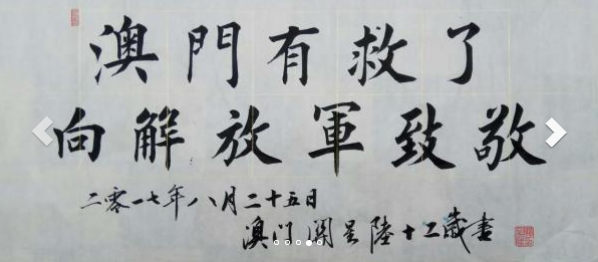 澳門有救了
向解放軍致敬
二零一七年八月二十五日
澳门 陸十二歲書